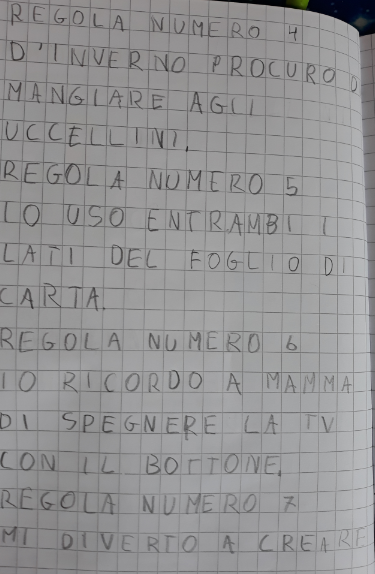 REGOLA NUMERO 4
D'INVERNO PROCURO D
MANGIARE AGLI
UCCELLINI.
REGOLA NUMERO 5
IO USO ENTRAMBI I
LATI DEL FOGLIO DI
CARTA.
REGOLA NUMERO 6
IO RICORDO A MAMMA
DI SPEGNERE LA TV
CON IL BOTTONE.
REGOLA NUMERO 7
MI DIVERTO A CREARE